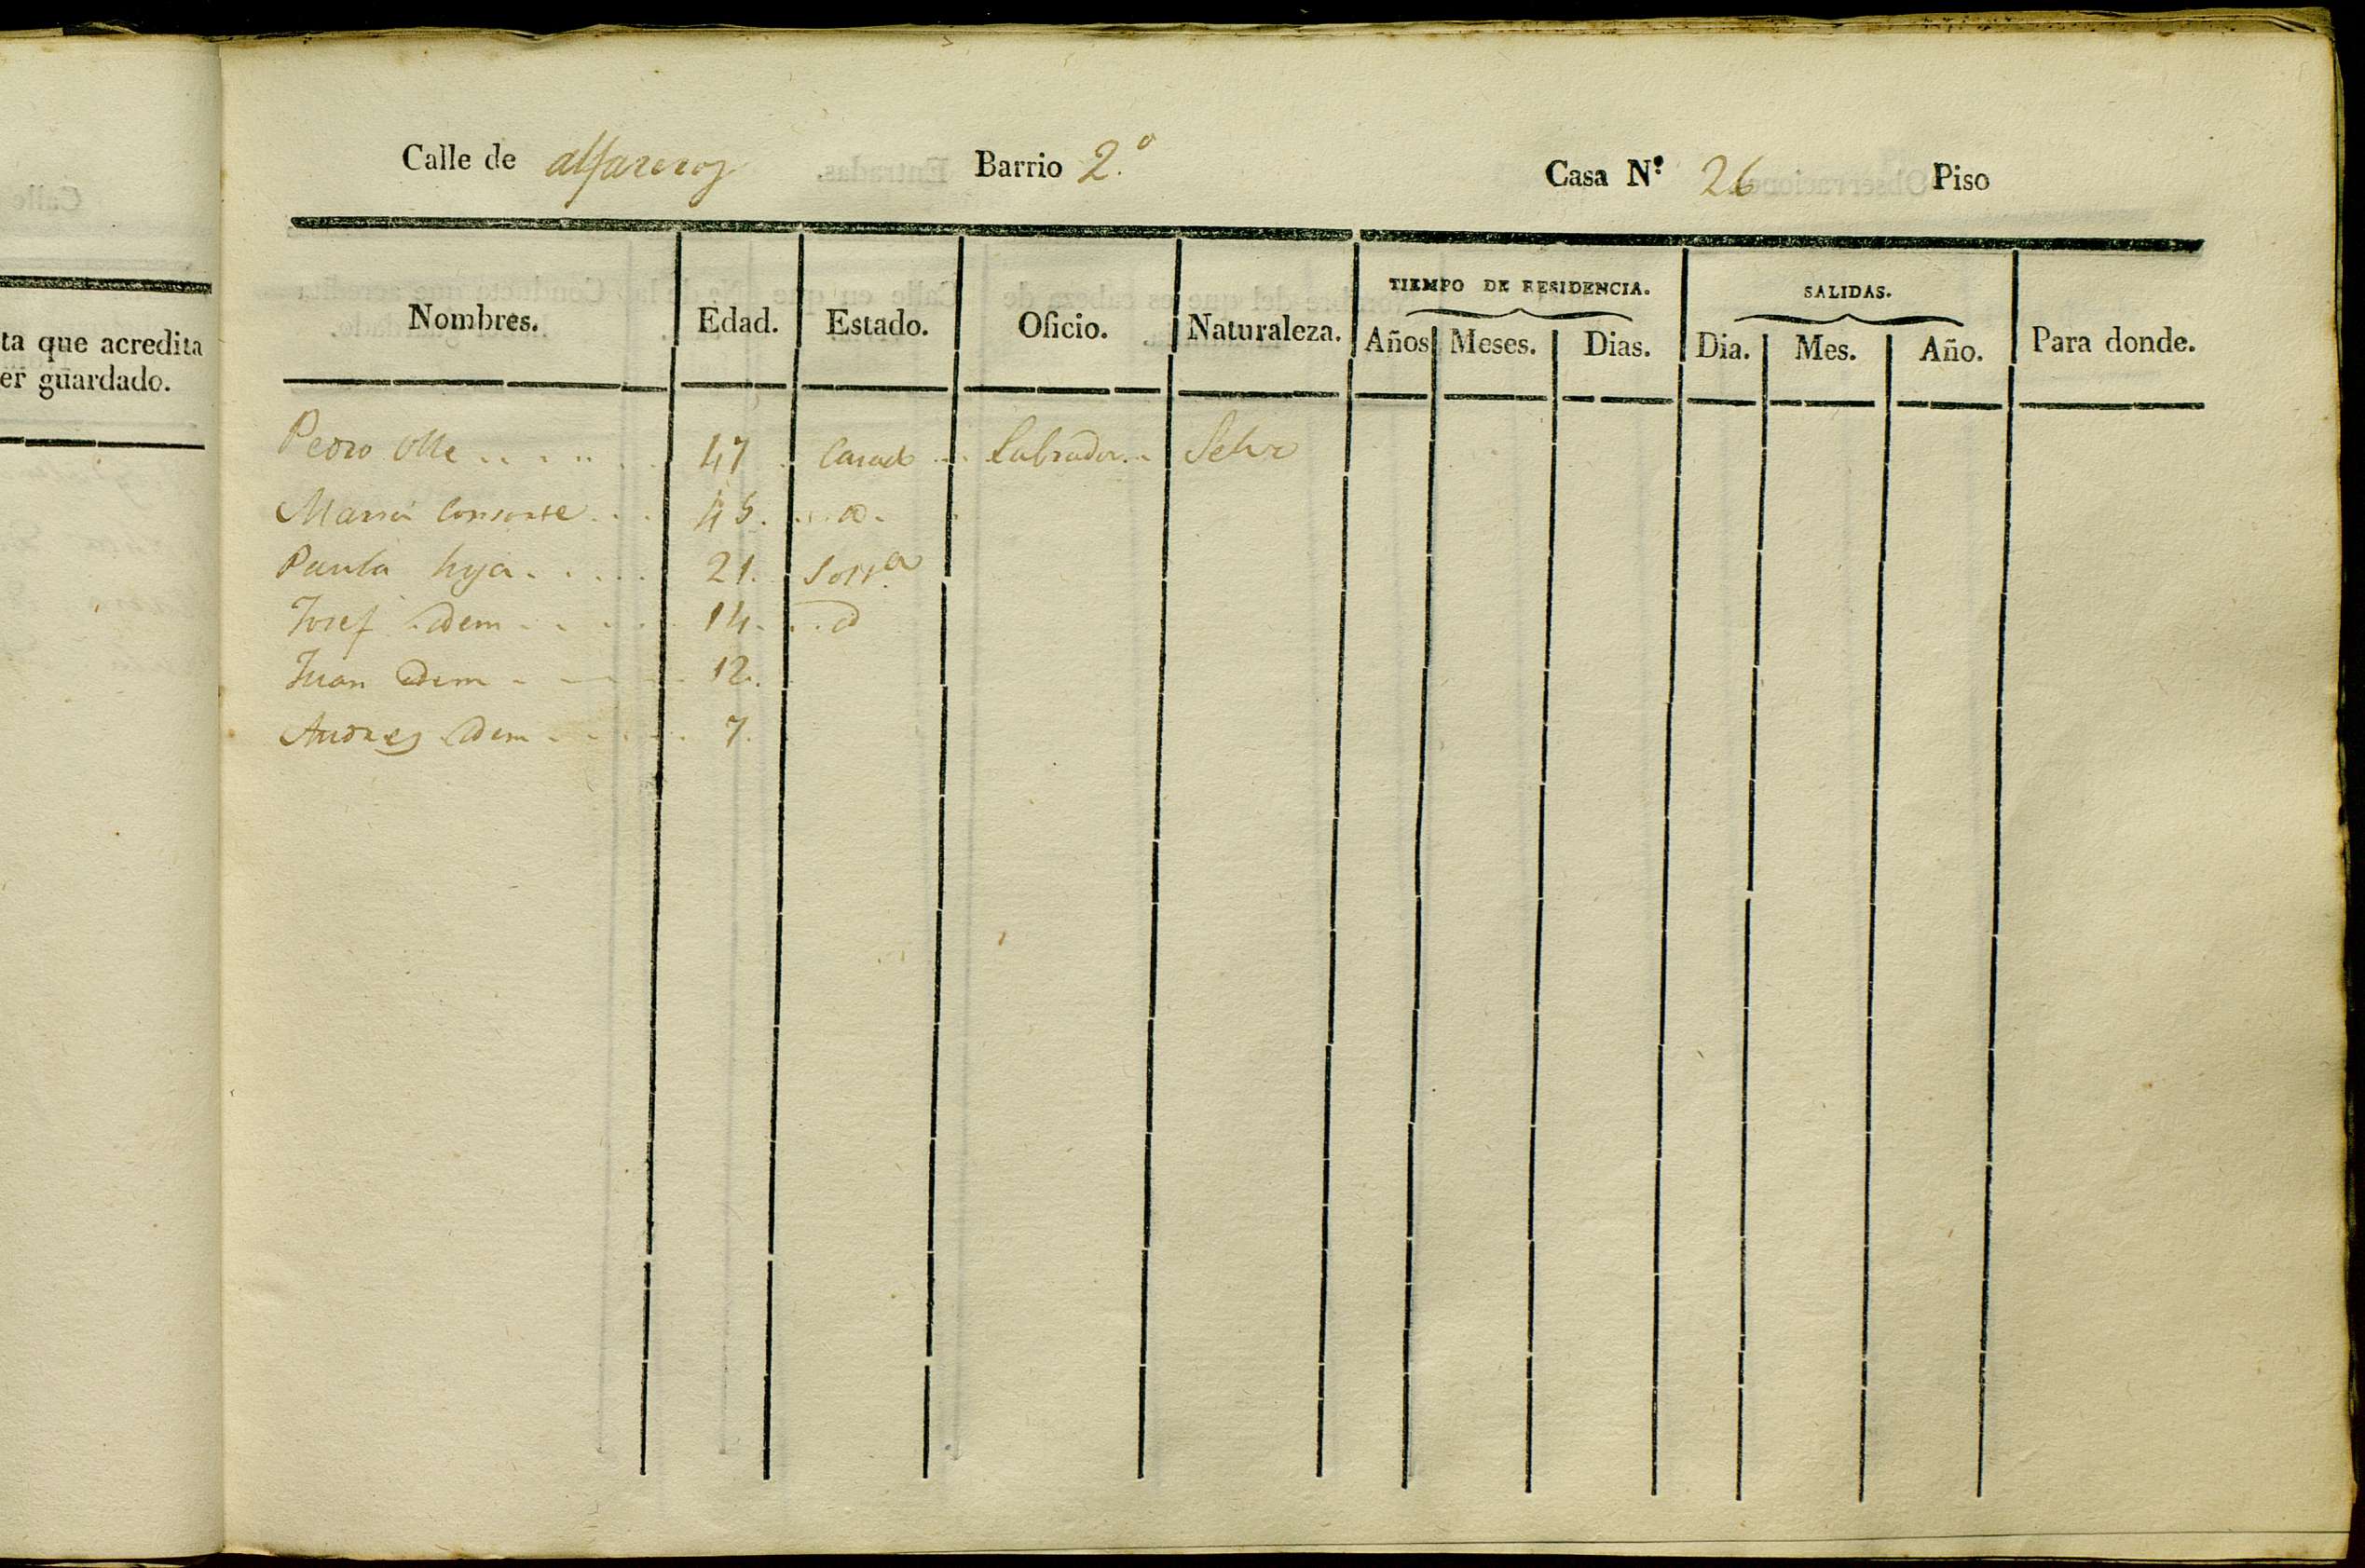 Calle de alfareros Barrio 2.º Casa N.º 26 Piso
TIEMPO DE RESIDENCIA. SALIDAS.
Nombres. Edad. Estado. Oficio. Naturaleza. Años Meses. Dias. Dia. Mes. Año. Para donde.
ta que acredita
er guardado.
Pedro Olle 47 Casado Labrador Selva
Maria Consorte 45. id.
Paula hija 21. Solt.a
Josef idem 14. id
Juan idem 12.
Andres idem 7.